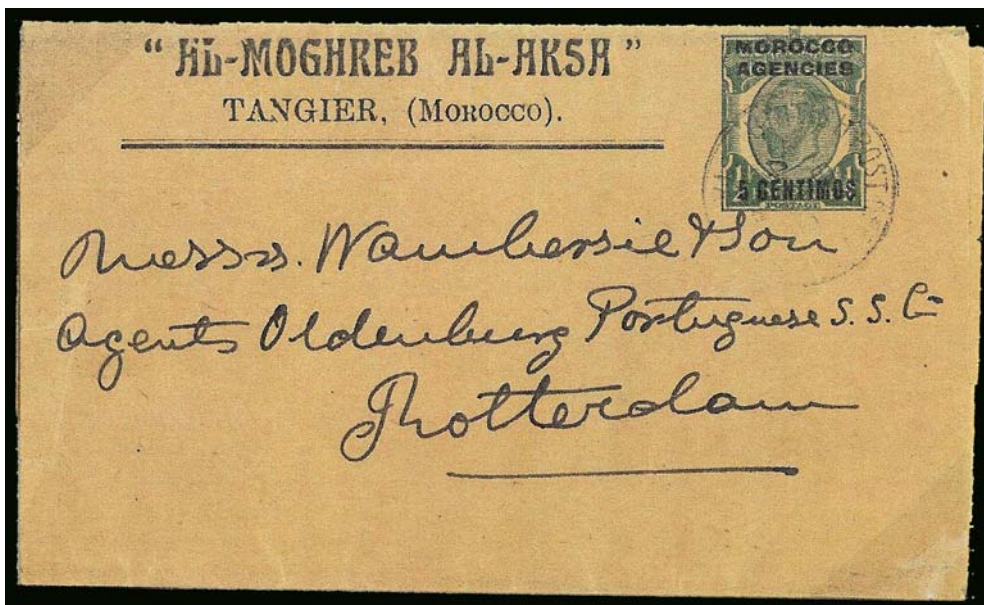 “ AL-MOGHREB AL-AKSA ”
TANGIER, (MOROCCO).
MOROCCO
AGENCIES
5 CENTIMOS
POSTAGE
POST
Messrs. Wambersie & Son
Agents Oldenburg Portuguese S. S. Co
Rotterdam